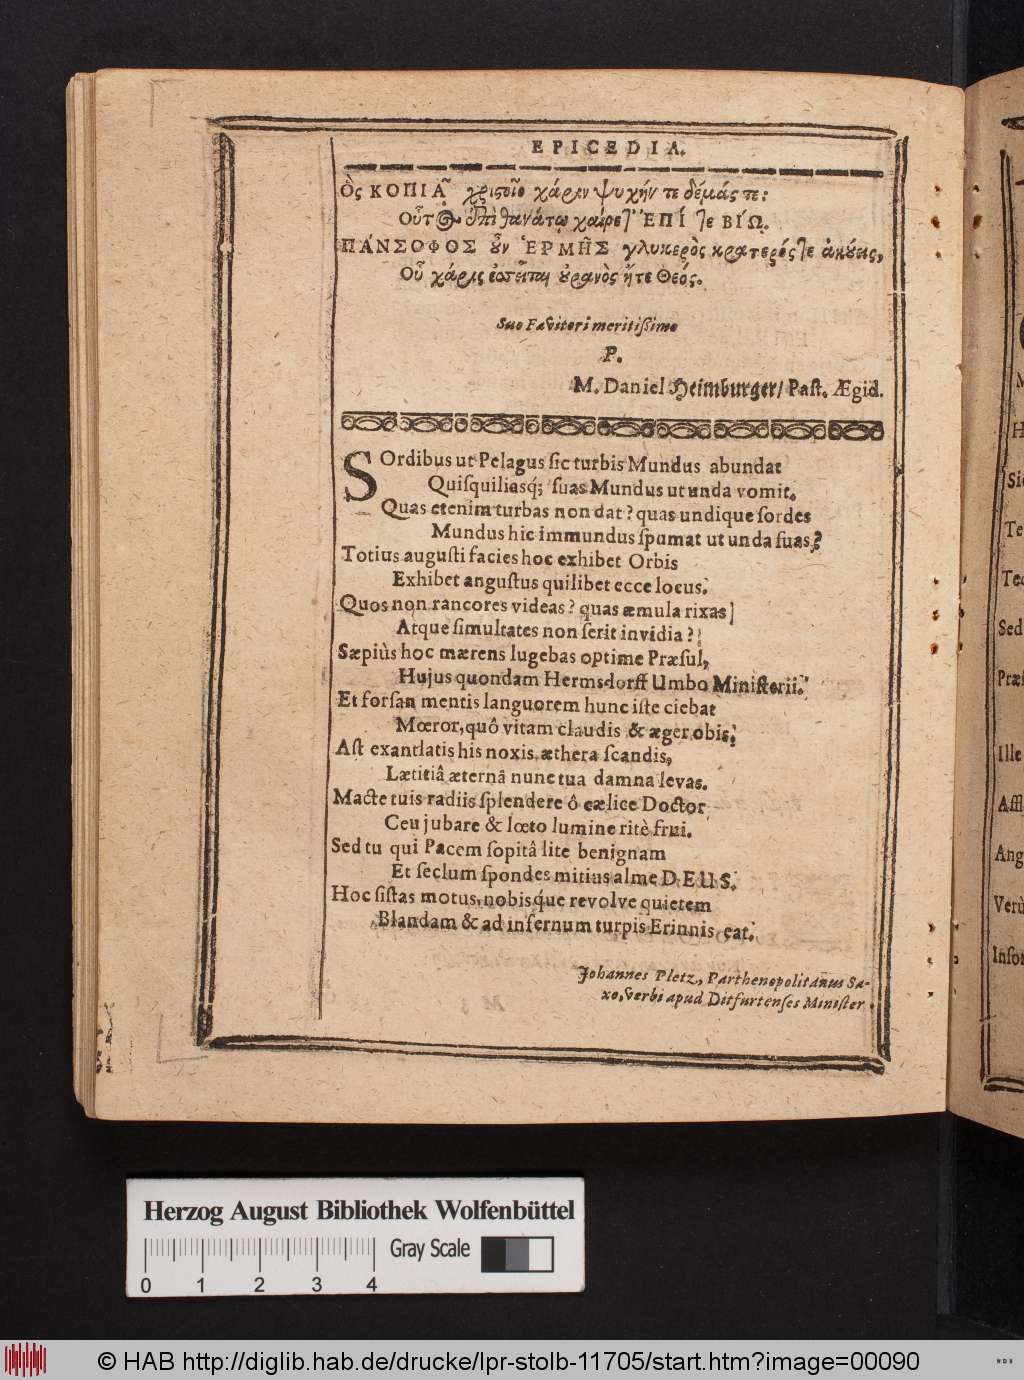 EPICEDIA.
Ὃς ΚΟΠΙΑ͂ χριστοῖο χάριν ψυχήν τε δέμάς τε:
Οὗτος θανάτῳ χαίρει ἘΠΊ τε ΒΊΩ.
ΠΆΝΣΟΦΟΣ οὖν ἙΡΜΗ͂Σ γλυκερὸς κρατερός τε ἀκούεις,
Οὗ χάρις οὐρανὸς ἤτε Θεός.
Suo Favitori meritißimo
P.
M. Daniel Heimburger/ Past. Ægid.
SOrdibus ut Pelagus sic turbis Mundus abundat
Quisquiliasq́; suas Mundus ut unda vomit.
Quas etenim turbas non dat? quas undique sordes
Mundus hic immundus spumat ut unda suas?
Totius augusti facies hoc exhibet Orbis
Exhibet angustus quilibet ecce locus.
Quos non rancores videas? quas æmula rixas
Atque simultates non serit invidia?
Sæpiùs hoc mærens lugebas optime Præsul,
Hujus quondam Hermsdorff Umbo Ministerii.
Et forsan mentis languorem hunc iste ciebat
Mœror, quô vitam claudis & æger obis;
Ast exantlatis his noxis æthera scandis,
Lætitiâ æternâ nunc tua damna levas.
Macte tuis radiis splendere ô cælice Doctor
Ceu jubare & lœto lumine ritè frui.
Sed tu qui Pacem sopitâ lite benignam
Et seclum spondes mitius alme DEUS.
Hoc sistas motus, nobisq́ue revolve quietem
Blandam & ad infernum turpis Erinnis eat.
Johannes Pletz, Parthenopolitanus Sa-
xo, verbi apud Ditfurtenses Minister.
Herzog August Bibliothek Wolfenbüttel
0 1 2 3 4 Gray Scale
© HAB http://diglib.hab.de/drucke/lpr-stolb-11705/start.htm?image=00090